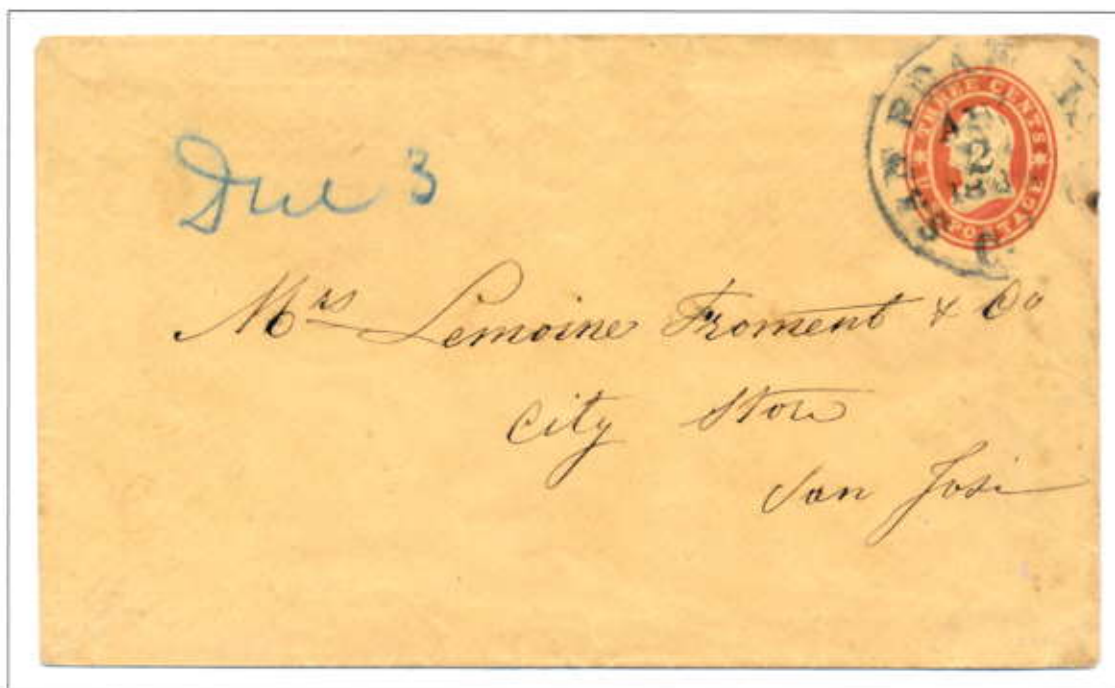 Due 3
THREE CENTS
U.S. POSTAGE
SAN FRAN
2
Mrs Lemoine Froment & Co
City Store
San José